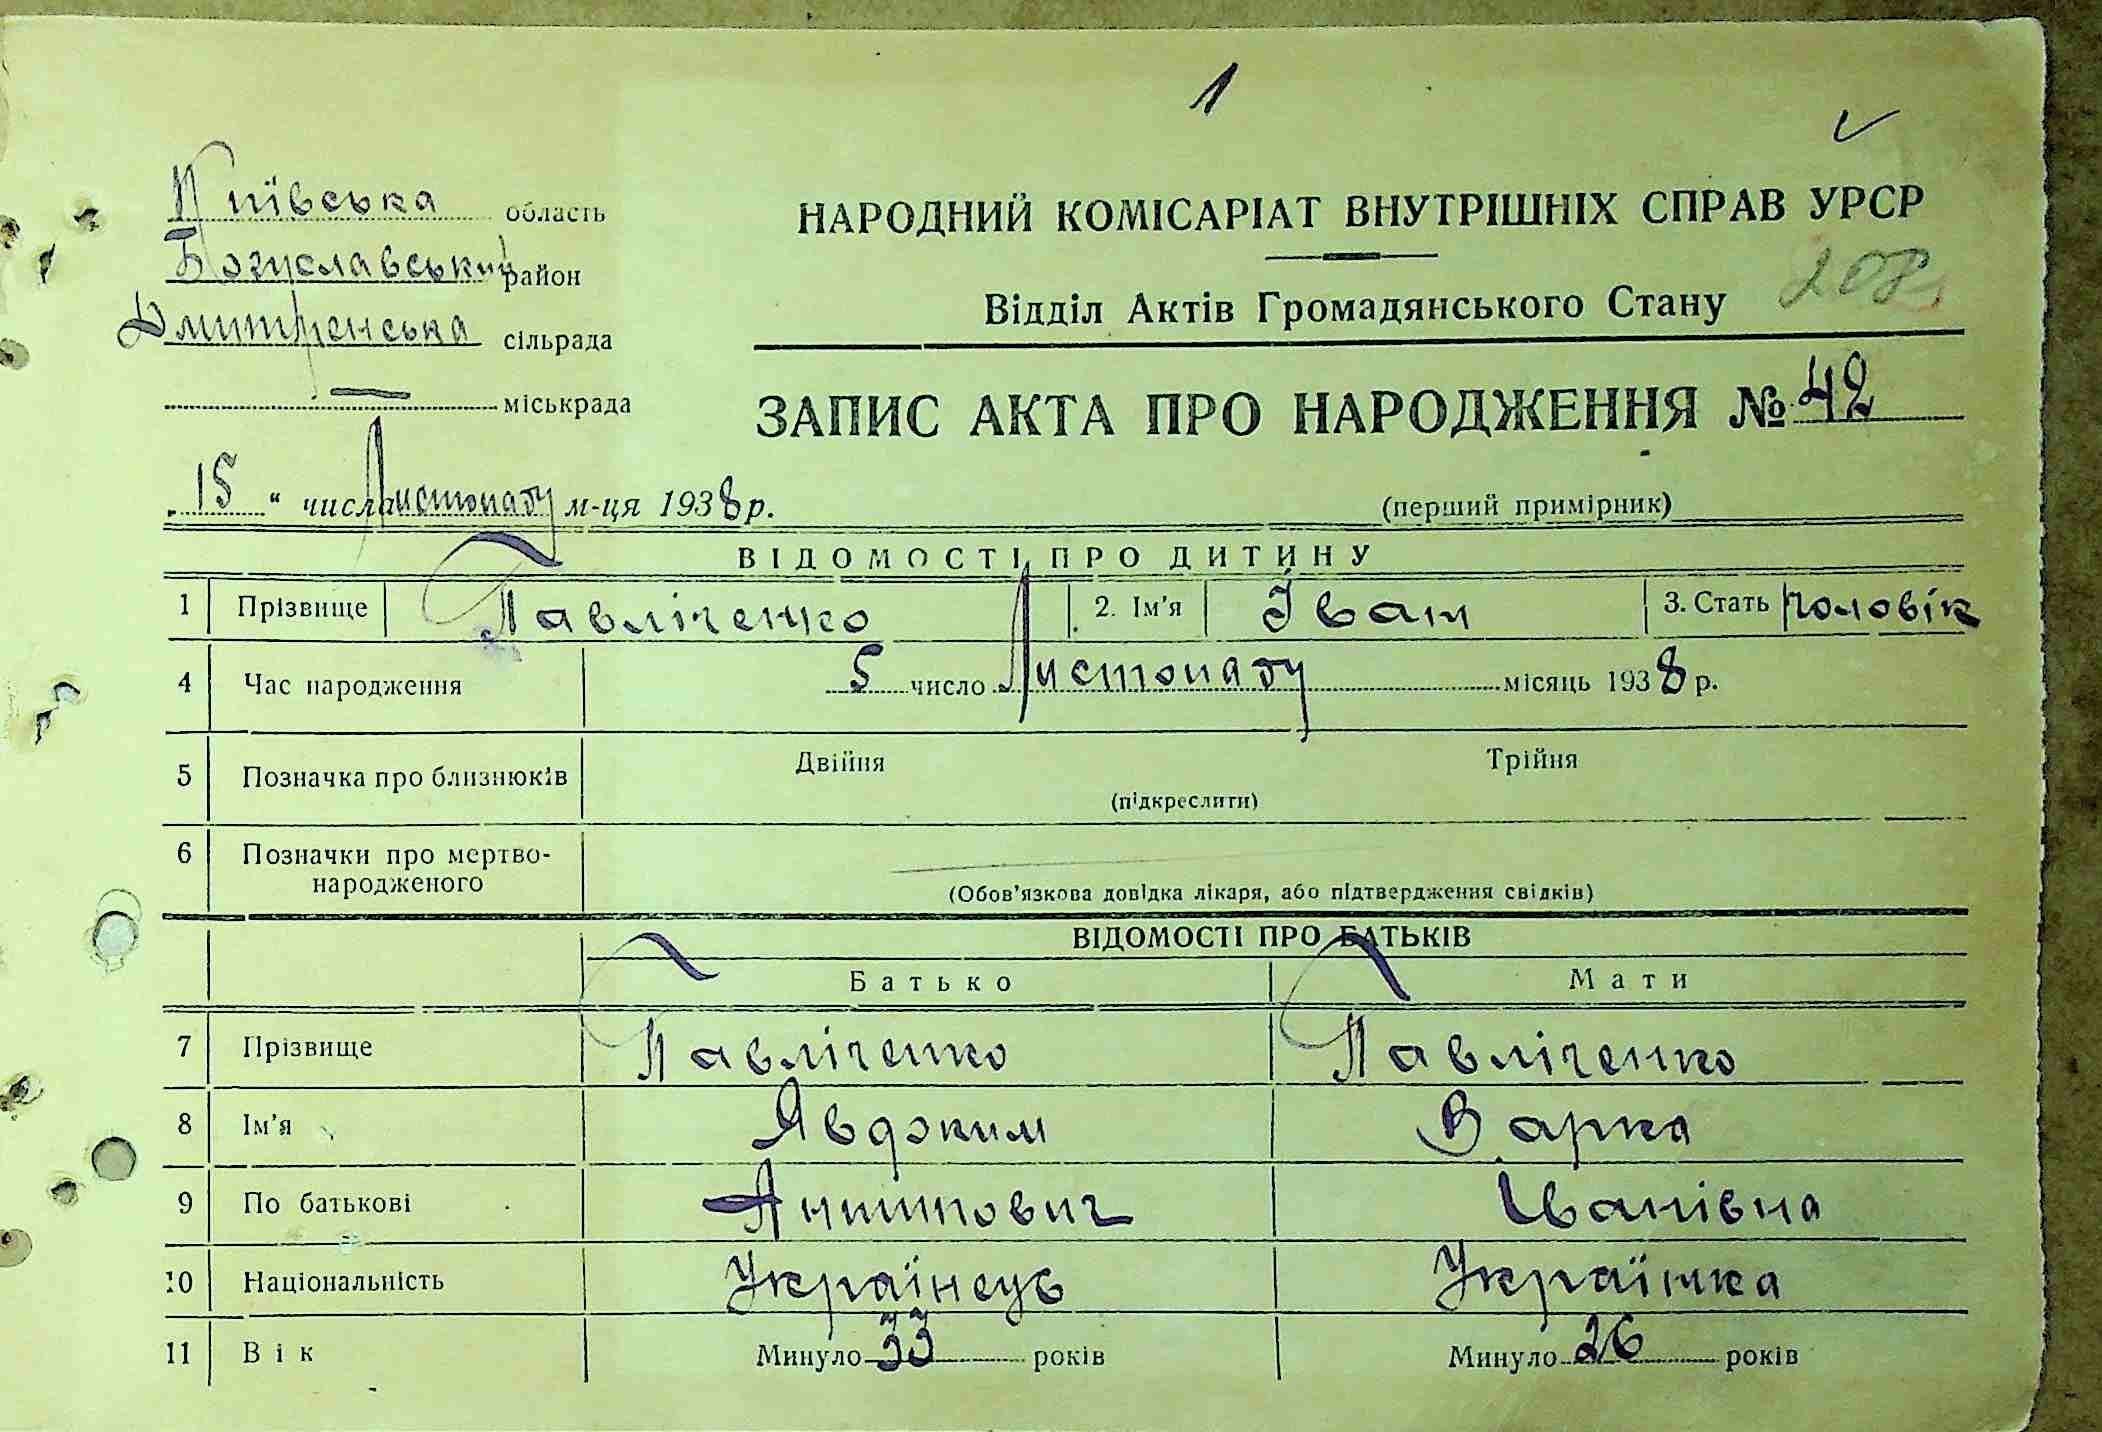 1
Київська область
Богуславський район
НАРОДНИЙ КОМІСАРІАТ ВНУТРІШНІХ СПРАВ УРСР
208
Дмитренська сільрада
Відділ Актів Громадянського Стану
— міськрада
ЗАПИС АКТА ПРО НАРОДЖЕННЯ № 42
„15“ числа Листопаду м-ця 1938 р.
(перший примірник)
ВІДОМОСТІ ПРО ДИТИНУ
1 Прізвище Павліченко 2. Ім'я Іван 3. Стать чоловік
4 Час народження 5 число Листопаду місяць 1938 р.
5 Позначка про близнюків Двійня Трійня
(підкреслити)
6 Позначки про мертво-
народженого
(Обов'язкова довідка лікаря, або підтвердження свідків)
ВІДОМОСТІ ПРО БАТЬКІВ
Батько Мати
7 Прізвище Павліченко Павліченко
8 Ім'я Явдоким Варка
9 По батькові Антипович Іванівна
10 Національність Українець Українка
11 Вік Минуло 33 років Минуло 26 років